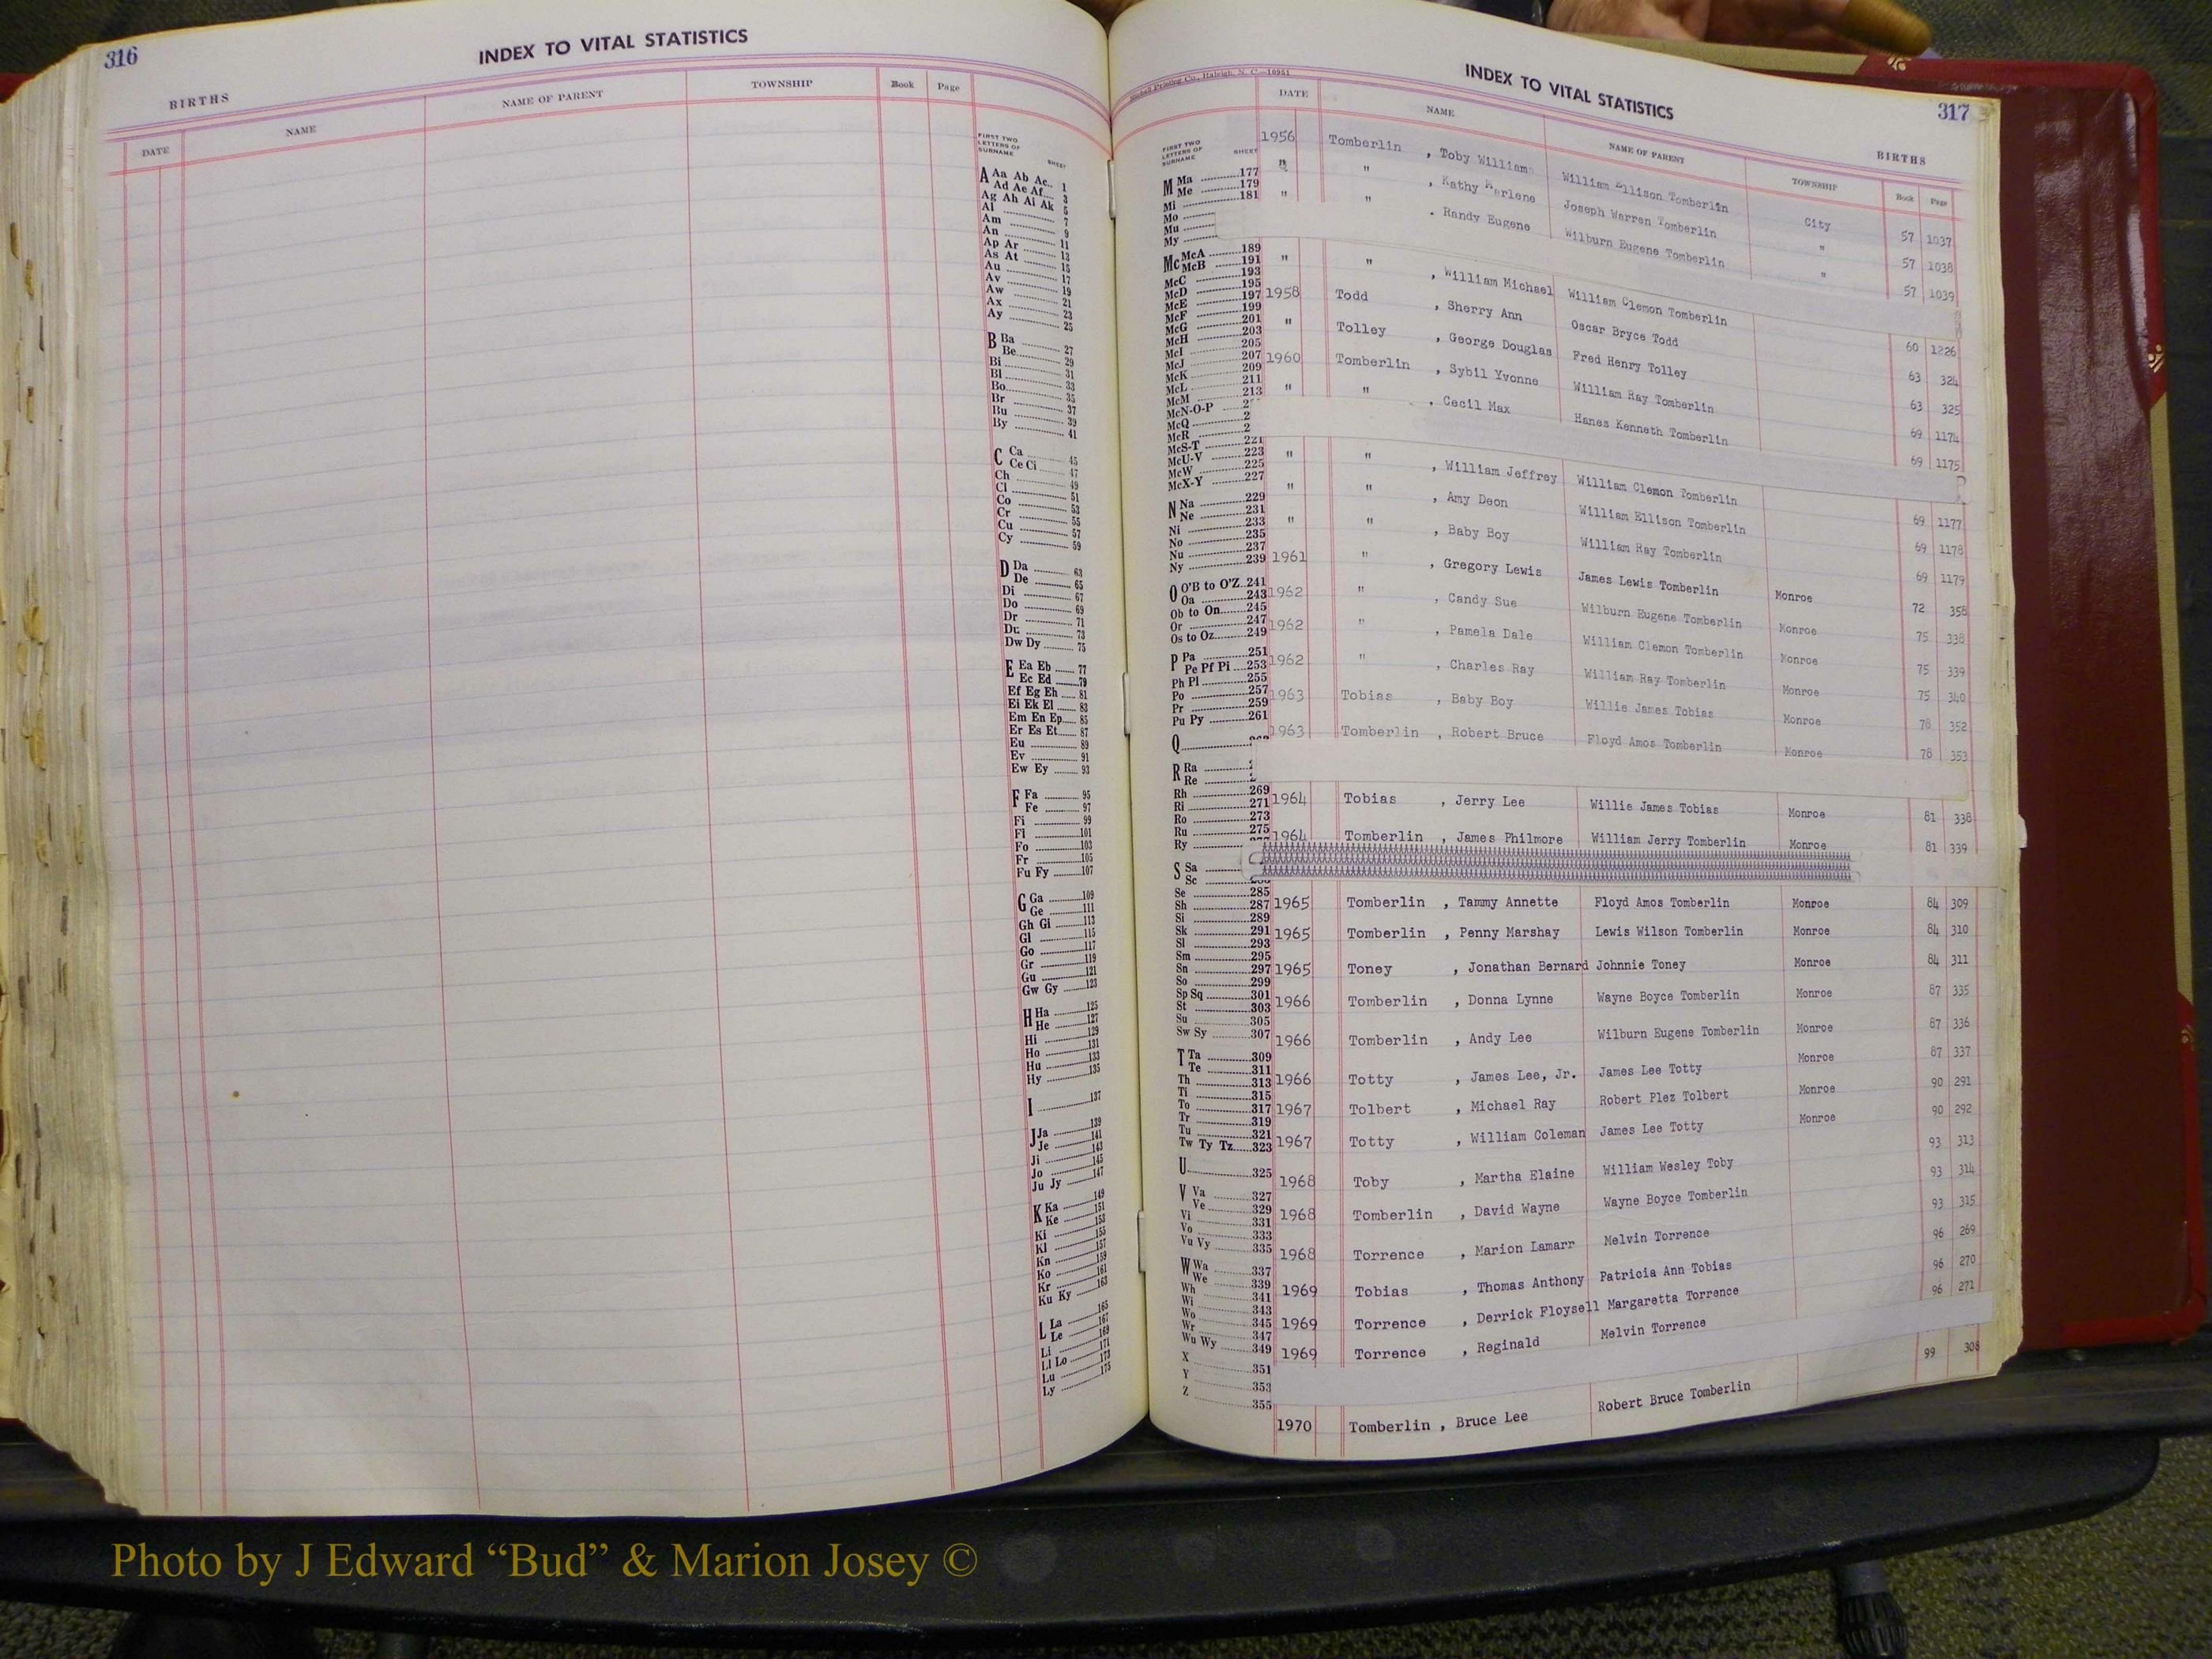 316
INDEX TO VITAL STATISTICS
BIRTHS
DATE NAME NAME OF PARENT TOWNSHIP Book Page
FIRST TWO
LETTERS OF
SURNAME SHEET
A Aa Ab Ac.. 1
Ad Ae Af.... 3
Ag Ah Ai Ak 5
Al 7
Am 9
An 11
Ap Ar 13
As At 15
Au 17
Av 19
Aw 21
Ax 23
Ay 25
B Ba 27
Be 29
Bi 31
Bl 33
Bo 35
Br 37
Bu 39
By 41
C Ca 45
Ce Ci 47
Ch 49
Cl 51
Co 53
Cr 55
Cu 57
Cy 59
D Da 63
De 65
Di 67
Do 69
Dr 71
Du 73
Dw Dy 75
E Ea Eb 77
Ec Ed 79
Ef Eg Eh 81
Ei Ek El 83
Em En Ep 85
Er Es Et 87
Eu 89
Ev 91
Ew Ey 93
F Fa 95
Fe 97
Fi 99
Fl 101
Fo 103
Fr 105
Fu Fy 107
G Ga 109
Ge 111
Gh Gi 113
Gl 115
Go 117
Gr 119
Gu 121
Gw Gy 123
H Ha 125
He 127
Hi 129
Ho 131
Hu 133
Hy 135
I 137
J Ja 139
Je 141
Ji 143
Jo 145
Ju Jy 147
K Ka 149
Ke 151
Ki 153
Kl 155
Kn 157
Ko 159
Kr 161
Ku Ky 163
L La 165
Le 167
Li 169
Ll Lo 171
Lu 173
Ly 175
Printing Co., Raleigh, N. C.—10951
INDEX TO VITAL STATISTICS
317
BIRTHS
DATE NAME NAME OF PARENT TOWNSHIP Book Page
FIRST TWO
LETTERS OF
SURNAME SHEET
M Ma 177
Me 179
Mi 181
Mo
Mu
My
Mc McA 189
McB 191
McC 193
McD 195
McE 197
McF 199
McG 201
McH 203
McI 205
McJ 207
McK 209
McL 211
McM 213
McN-O-P 2
McQ 2
McR 2
McS-T 221
McU-V 223
McW 225
McX-Y 227
N Na 229
Ne 231
Ni 233
No 235
Nu 237
Ny 239
O O'B to O'Z 241
Oa 243
Ob to On 245
Or 247
Os to Oz 249
P Pa 251
Pe Pf Pi 253
Ph Pl 255
Po 257
Pr 259
Pu Py 261
Q
R Ra
Re
Rh 269
Ri 271
Ro 273
Ru 275
Ry
S Sa
Sc
Se 285
Sh 287
Si 289
Sk 291
Sl 293
Sm 295
Sn 297
So 299
Sp Sq 301
St 303
Su 305
Sw Sy 307
T Ta 309
Te 311
Th 313
Ti 315
To 317
Tr 319
Tu 321
Tw Ty Tz 323
U 325
V Va 327
Ve 329
Vi 331
Vo 333
Vu Vy 335
W Wa 337
We 339
Wh 341
Wi 343
Wo 345
Wr 347
Wu Wy 349
X 351
Y 353
Z 355
1956 Tomberlin , Toby William William Ellison Tomberlin City 57 1037
" " , Kathy Karlene Joseph Warren Tomberlin " 57 1038
" " , Randy Eugene Wilburn Eugene Tomberlin " 57 1039
" " , William Michael William Clemon Tomberlin 60 1226
1958 Todd , Sherry Ann Oscar Bryce Todd 63 324
" Tolley , George Douglas Fred Henry Tolley 63 325
1960 Tomberlin , Sybil Yvonne William Ray Tomberlin 69 1174
" " , Cecil Max Hanes Kenneth Tomberlin 69 1175
" " , William Jeffrey William Clemon Tomberlin 69 1177
" " , Amy Deon William Ellison Tomberlin 69 1178
" " , Baby Boy William Ray Tomberlin 69 1179
1961 " , Gregory Lewis James Lewis Tomberlin Monroe 72 358
1962 " , Candy Sue Wilburn Eugene Tomberlin Monroe 75 338
1962 " , Pamela Dale William Clemon Tomberlin Monroe 75 339
1962 " , Charles Ray William Ray Tomberlin Monroe 75 340
1963 Tobias , Baby Boy Willie James Tobias Monroe 78 352
1963 Tomberlin , Robert Bruce Floyd Amos Tomberlin Monroe 78 353
1964 Tobias , Jerry Lee Willie James Tobias Monroe 81 338
1964 Tomberlin , James Philmore William Jerry Tomberlin Monroe 81 339
1965 Tomberlin , Tammy Annette Floyd Amos Tomberlin Monroe 84 309
1965 Tomberlin , Penny Marshay Lewis Wilson Tomberlin Monroe 84 310
1965 Toney , Jonathan Bernard Johnnie Toney Monroe 84 311
1966 Tomberlin , Donna Lynne Wayne Boyce Tomberlin Monroe 87 335
1966 Tomberlin , Andy Lee Wilburn Eugene Tomberlin Monroe 87 336
1966 Totty , James Lee, Jr. James Lee Totty Monroe 87 337
1967 Tolbert , Michael Ray Robert Plez Tolbert Monroe 90 291
1967 Totty , William Coleman James Lee Totty Monroe 90 292
1968 Toby , Martha Elaine William Wesley Toby 93 313
1968 Tomberlin , David Wayne Wayne Boyce Tomberlin 93 314
1968 Torrence , Marion Lamarr Melvin Torrence 93 315
1969 Tobias , Thomas Anthony Patricia Ann Tobias 96 269
1969 Torrence , Derrick Floysell Margaretta Torrence 96 270
1969 Torrence , Reginald Melvin Torrence 96 271
1970 Tomberlin , Bruce Lee Robert Bruce Tomberlin 99 308
Photo by J Edward “Bud” & Marion Josey ©